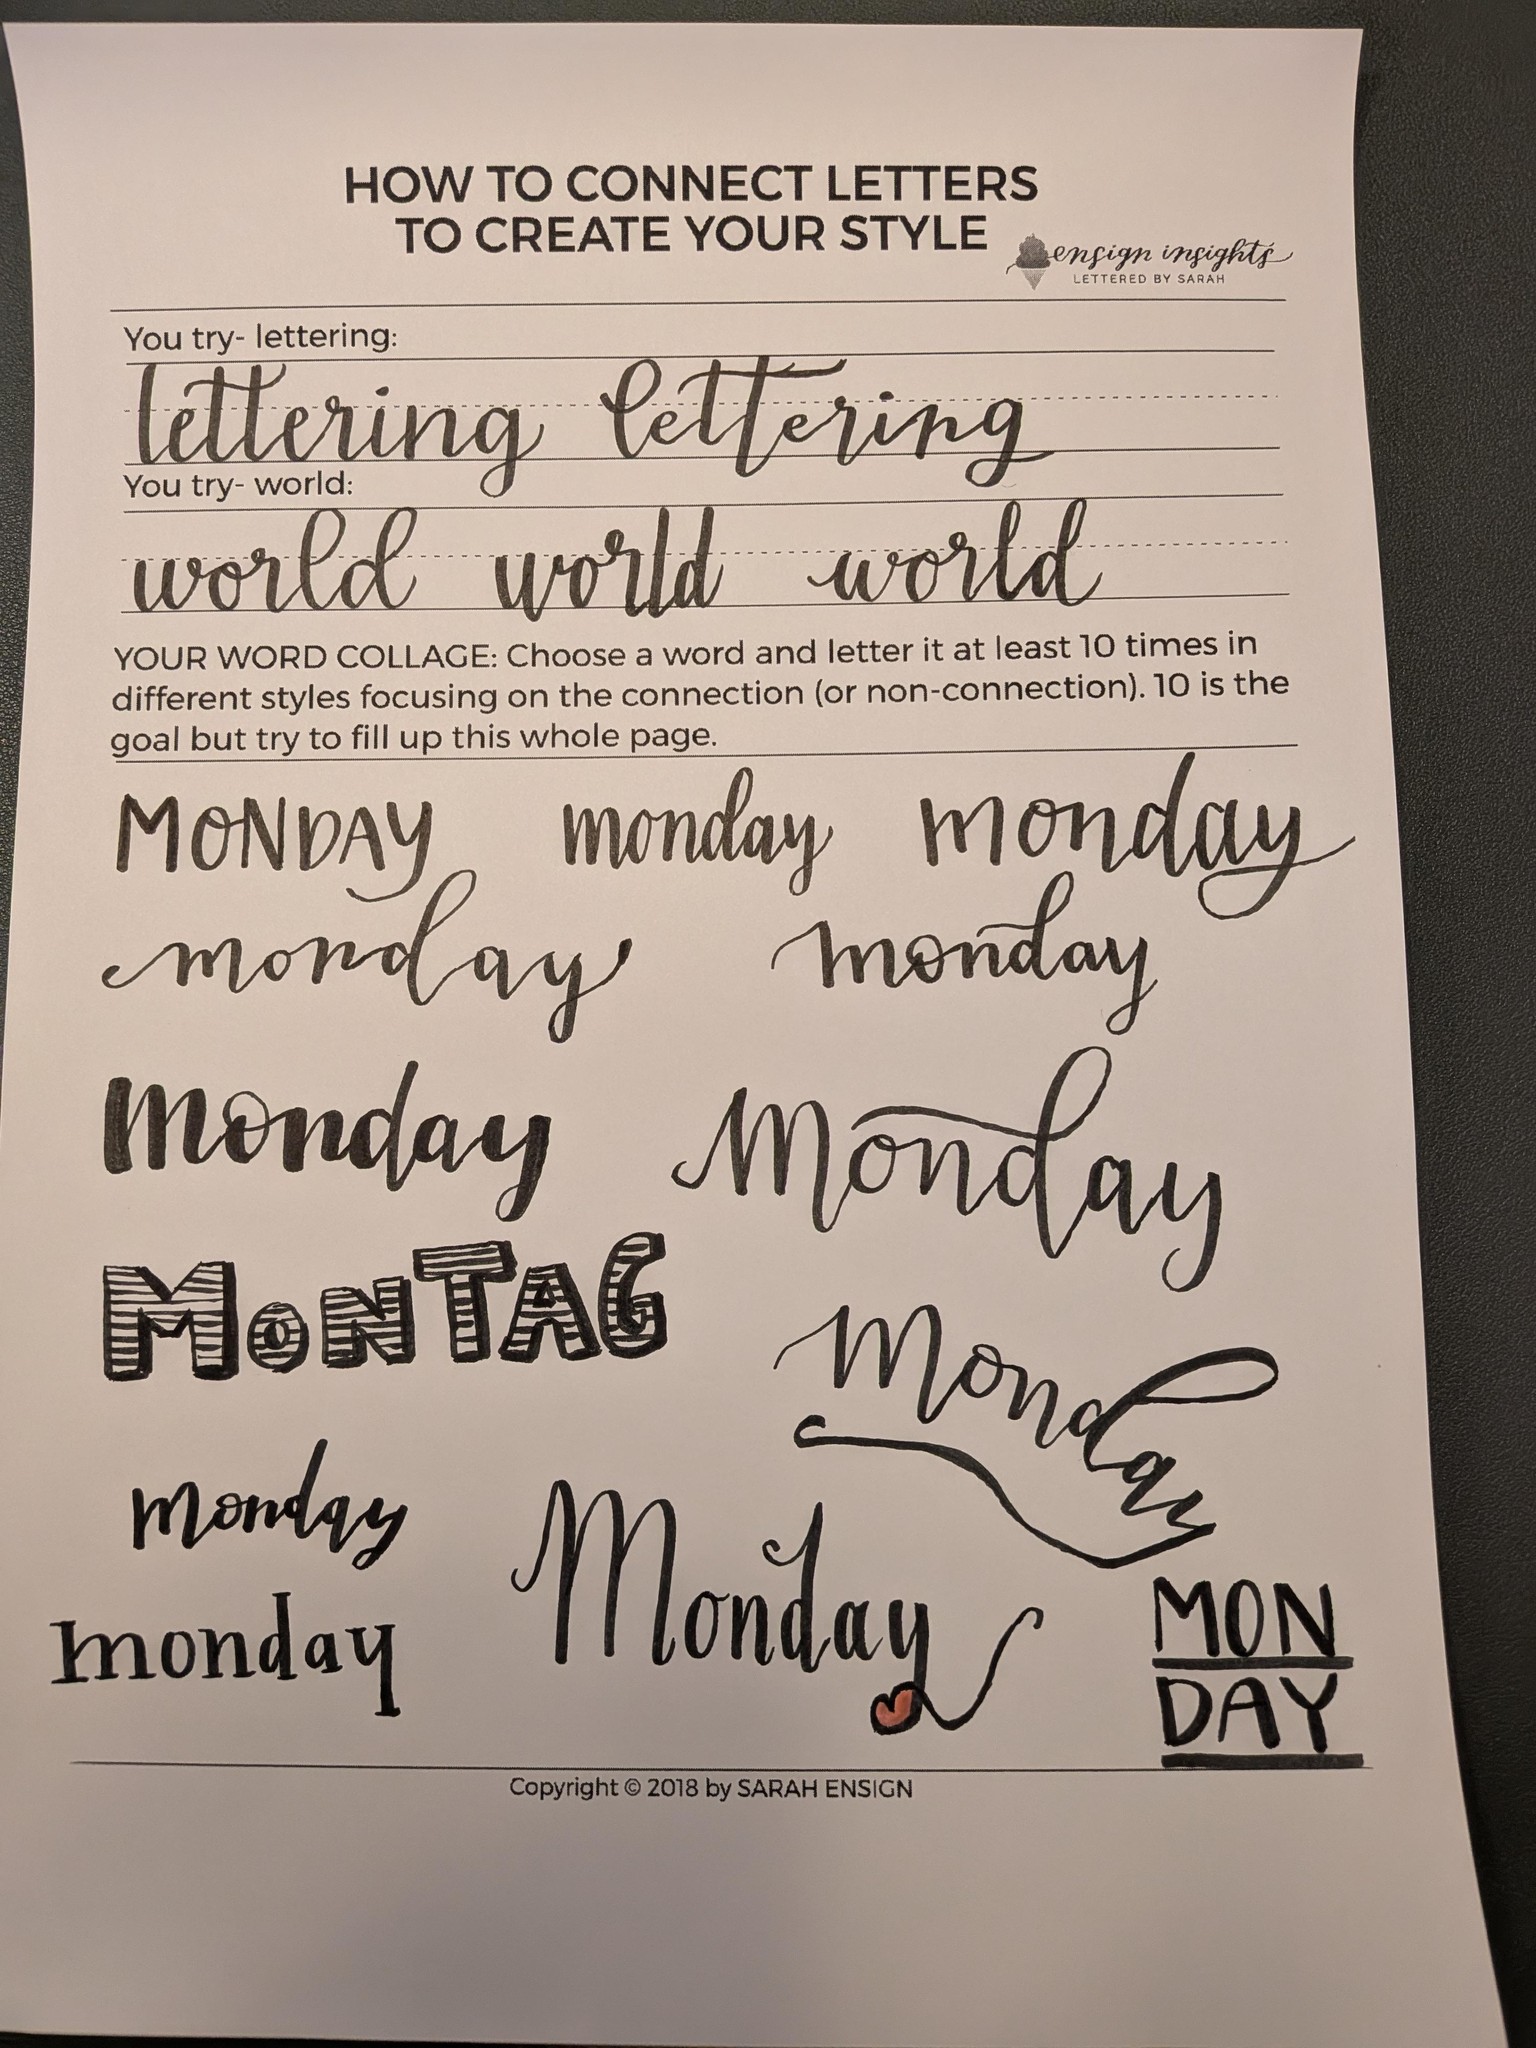 HOW TO CONNECT LETTERS
TO CREATE YOUR STYLE
ensign insights
LETTERED BY SARAH
You try- lettering:
lettering lettering
You try- world:
world world world
YOUR WORD COLLAGE: Choose a word and letter it at least 10 times in
different styles focusing on the connection (or non-connection). 10 is the
goal but try to fill up this whole page.
MONDAY monday monday
monday monday
monday Monday
MONTAG
Monday
monday
Monday
monday
MON
DAY
Copyright © 2018 by SARAH ENSIGN